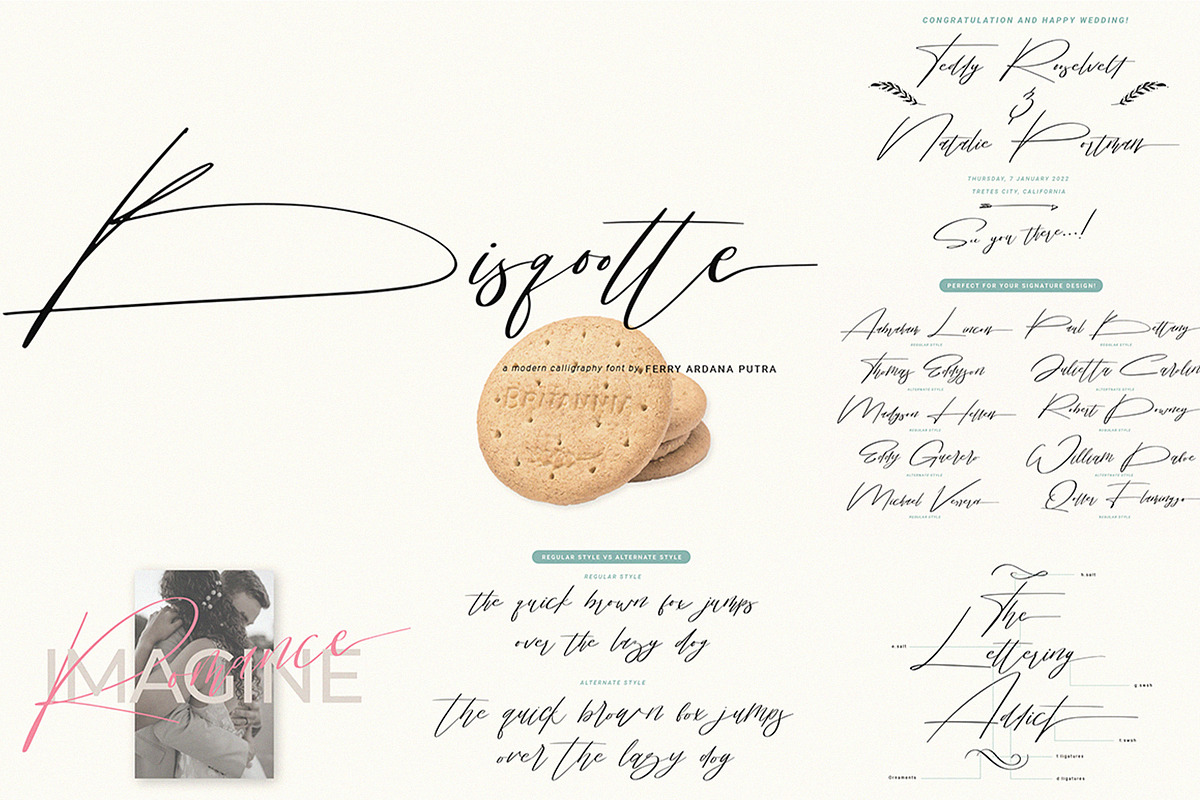 Bisqootte
a modern calligraphy font by FERRY ARDANA PUTRA
BRITANNIA
CONGRATULATION AND HAPPY WEDDING!
Teddy Rooselvelt
&
Natalie Portman
THURSDAY, 7 JANUARY 2022
TRETES CITY, CALIFORNIA
See you there...!
PERFECT FOR YOUR SIGNATURE DESIGN!
Aabraham Lincon
REGULAR STYLE
Paul Bettany
REGULAR STYLE
Thomas Eddyson
ALTERNATE STYLE
Julietta Carolin
ALTERTNATE STYLE
Madyson Hellen
REGULAR STYLE
Robert Downey
REGULAR STYLE
Eddy Guerero
ALTERNATE STYLE
William
ALTERTNATE STYLE
Michael
REGULAR STYLE
Flaminggo
REGULAR STYLE
IMAGINE
Romance
REGULAR STYLE VS ALTERNATE STYLE
REGULAR STYLE
the quick brown fox jumps
over the lazy dog
ALTERNATE STYLE
the quick brown fox jumps
over the lazy dog
h.salt
The
e.salt
Lettering
g.swsh
Addict
t.swsh
f.ligatures
Ornaments
d.ligatures